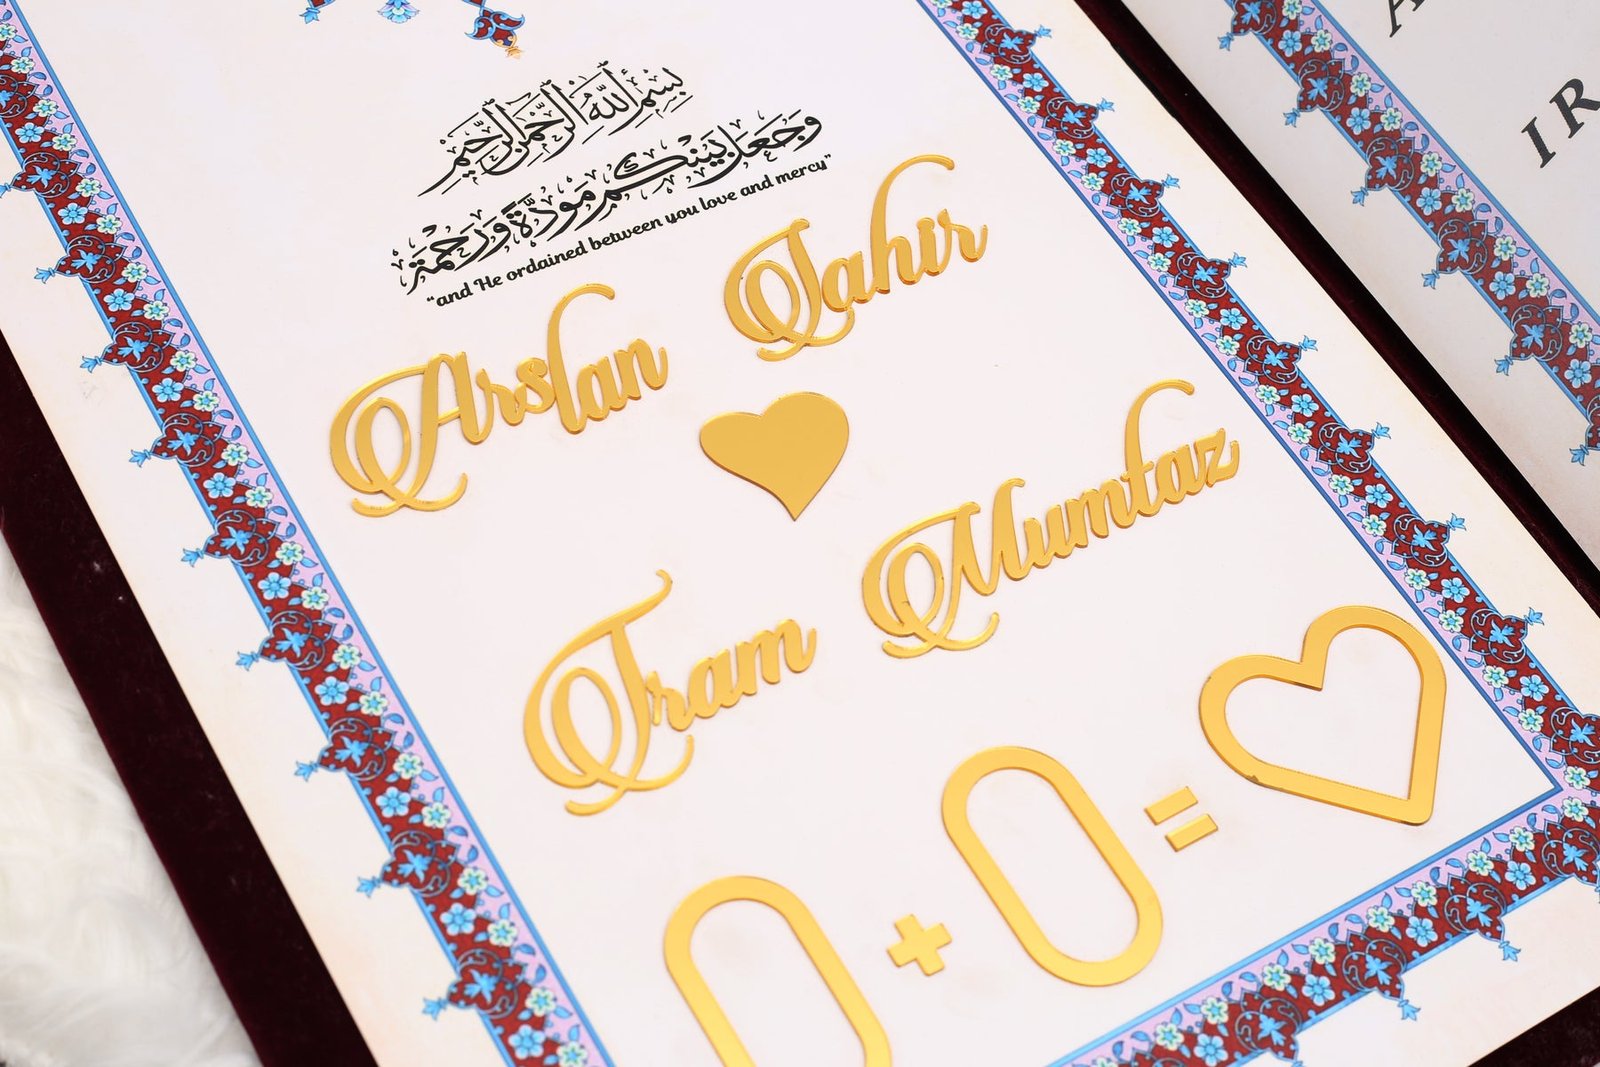 بِسْمِ اللَّهِ الرَّحْمَٰنِ الرَّحِيمِ
وَجَعَلَ بَيْنَكُم مَّوَدَّةً وَرَحْمَةً
"and He ordained between you love and mercy"
Arslan Tahir
Iram Mumtaz
0 + 0 =